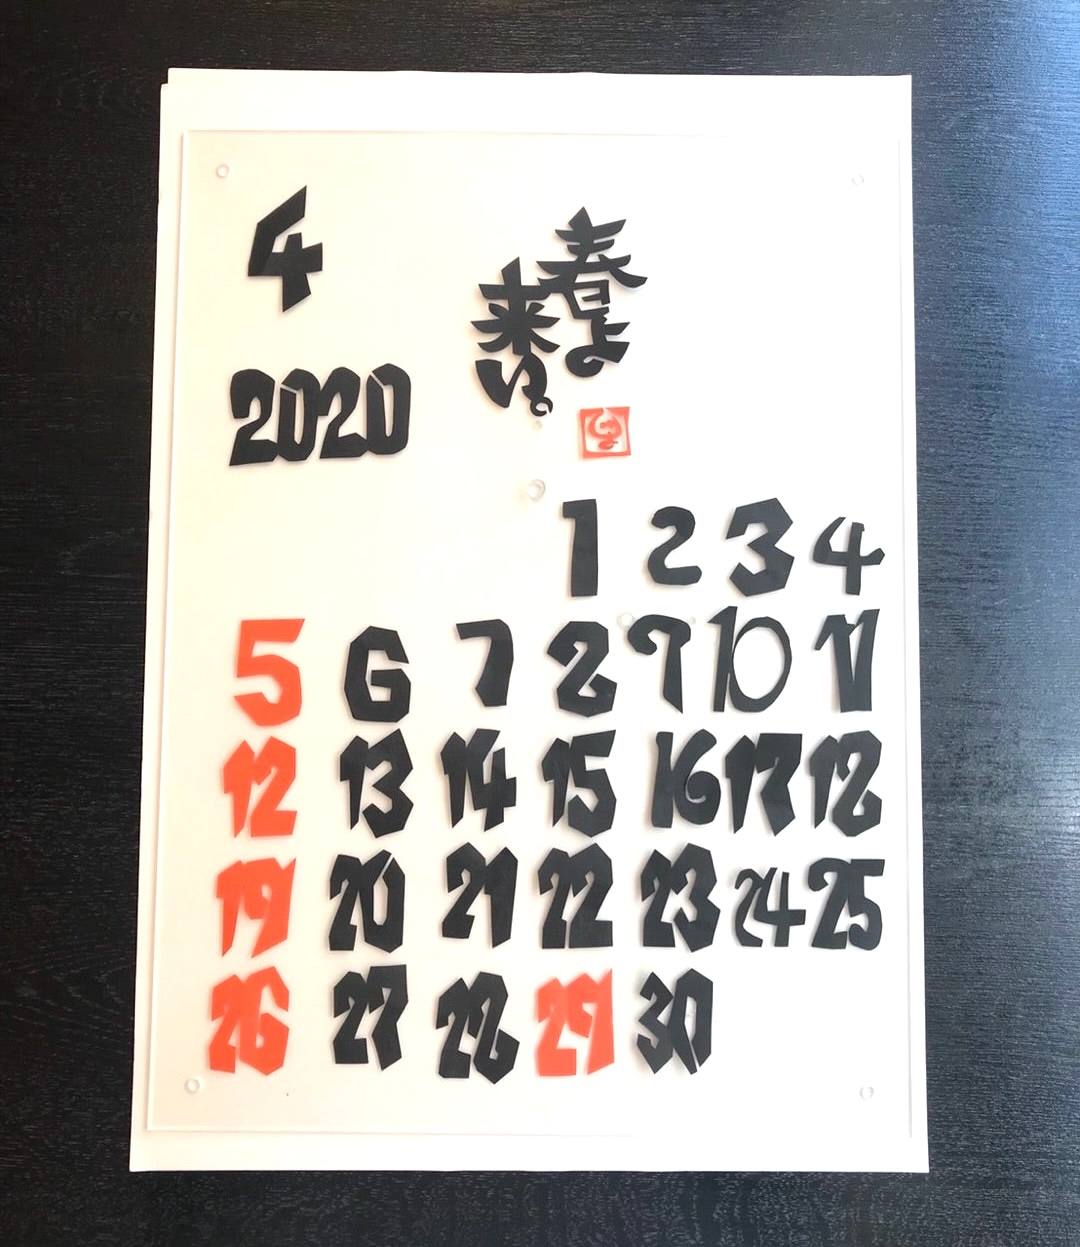 4
春よ
来い。
2020
1 2 3 4
5 6 7 8 9 10 11
12 13 14 15 16 17 18
19 20 21 22 23 24 25
26 27 28 29 30